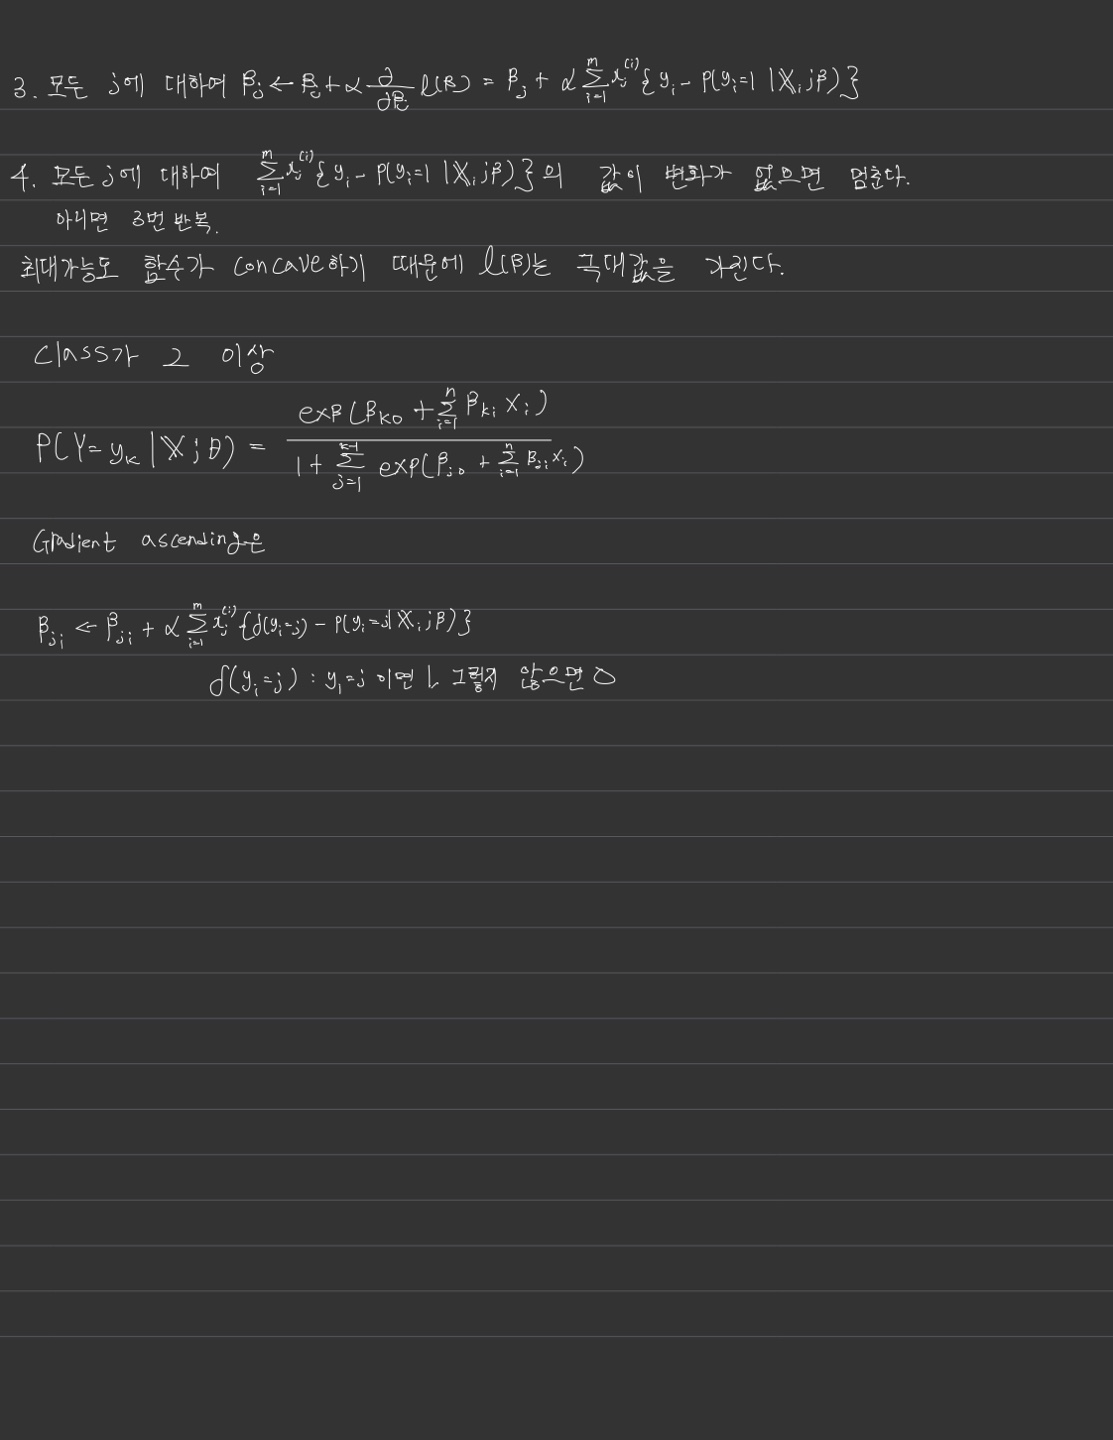 3. 모든 j에 대하여 βj ← βj + α ∂/∂βj l(β) = βj + α Σ_{i=1}^{m} xj^(i) { yi - P(yi=1 | Xi;β) }
4. 모든 j에 대하여 Σ_{i=1}^{m} xj^(i) { yi - P(yi=1 | Xi;β) } 의 값이 변화가 없으면 멈춘다.
아니면 3번 반복.
최대가능도 함수가 concave하기 때문에 l(β)는 극대값을 가진다.
Class가 2 이상
P(Y=yk | X;θ) = exp(βk0 + Σ_{i=1}^{n} βki Xi) / 1 + Σ_{j=1}^{k-1} exp(βj0 + Σ_{i=1}^{n} βji Xi)
Gradient ascending은
βji ← βji + α Σ_{i=1}^{m} xj^(i) {δ(yi=j) - P(yi=j | Xi;β)}
δ(yi=j) : yi=j 이면 1, 그렇지 않으면 0